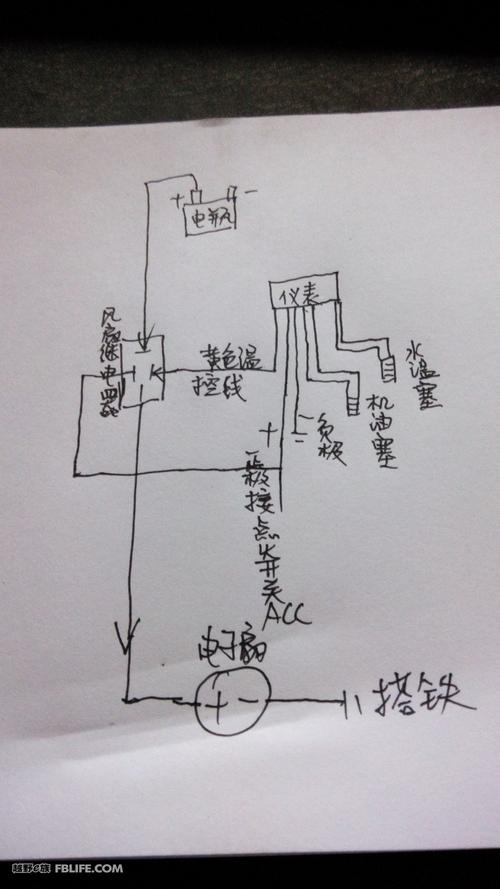 +
电瓶
-
仪表
风扇继电器
黄色温
控线
水温塞
机油塞
负极
-
+
正极接点火开关ACC
电子扇
+ -
搭铁
越野e族 FBLIFE.COM